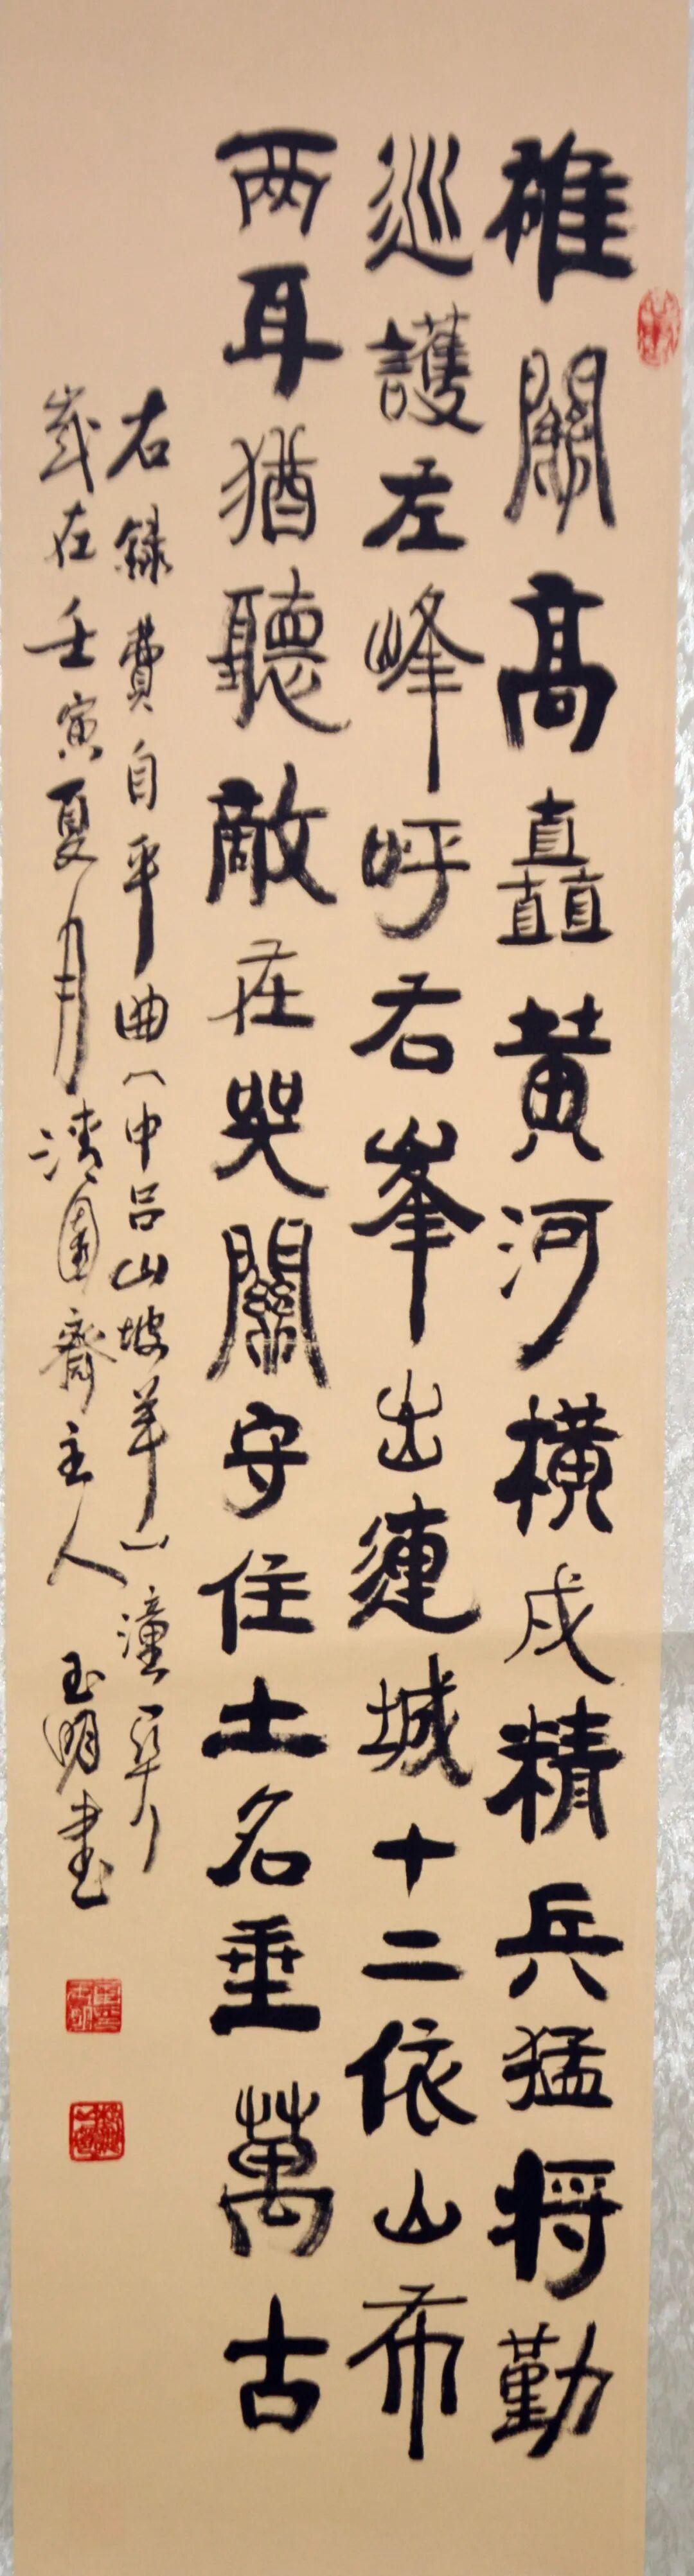 雄關高矗黄河橫戍精兵猛将勤
巡護左峰呼右峯出連城十二依山布
两耳猶聽敵在哭關守住土名垂萬古
右録費自平曲(中吕山坡羊)潼關
歲在壬寅夏月清園齋主人玉明书